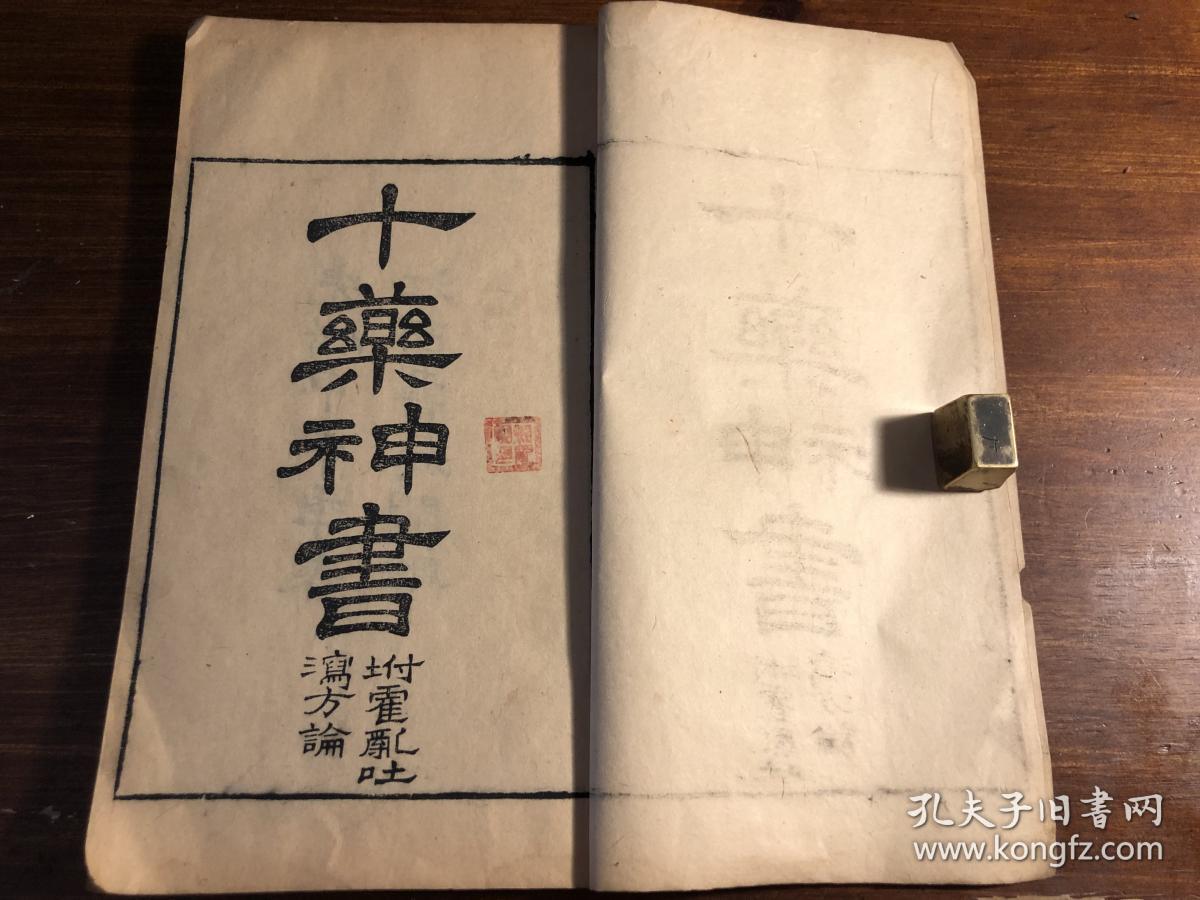 十藥神書
坿霍亂吐
瀉方論
孔夫子旧书网
www.kongfz.com